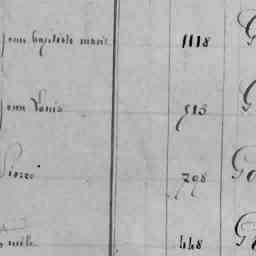 Jean baptiste marie 1118 G
Jean Louis 513 G
Pierre 798 G
448 G